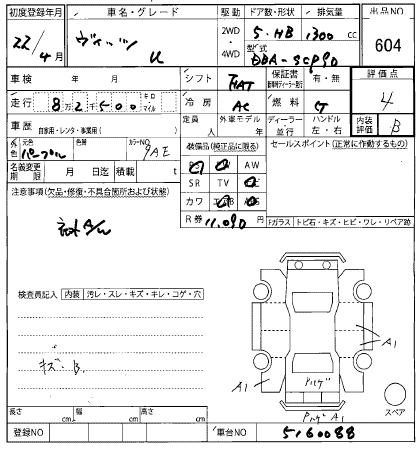 初度登録年月 車名・グレード 駆動 ドア数・形状 排気量 出品NO
22/4月 ヴィッツ U 2WD 4WD 5・HB 1300 cc 604
型式 DBA-SCP90
車検 年 月 シフト FAT 保証書 有・無 評価点
走行 82,500 キロ マイル 冷房 AC 燃料 G 4
車歴 自家用・レンタ・事業用( ) 定員 人 外車モデル 年 ディーラー 並行 ハンドル 左・右 内装評価 B
外色 元色 パープル 色替 カラーNO 9AE 装備品(純正品に限る) セールスポイント(正常に作動するもの)
名義変更期限 月 日迄 積載 t PS PW AW
注意事項(欠品・修復・不具合箇所および状態) SR TV ナビ
カワ エアB ABS
R券 11,090
Fガラス トビ石・キズ・ヒビ・ワレ・リペア跡
検査員記入 内装 汚レ・スレ・キズ・キレ・コゲ・穴
キズ・B
A1
A1
A1
スペア
長さ cm 幅 cm 高さ cm
登録NO 車台NO 5160088